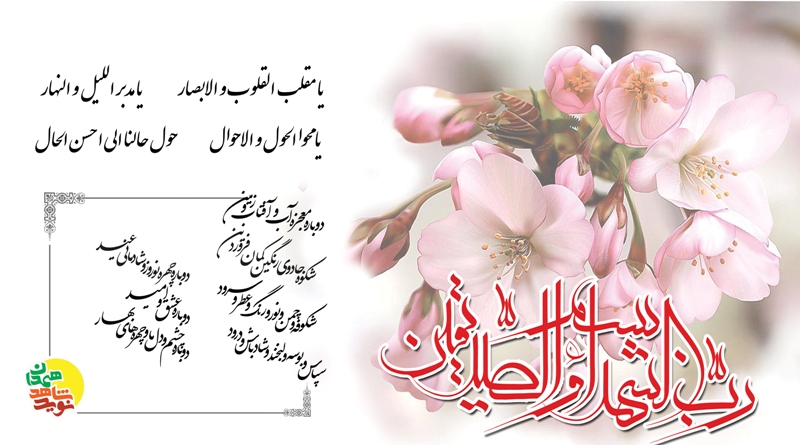 یا مقلب القلوب و الابصار یا مدبر اللیل و النهار
یا محوا الحول و الاحوال حول حالنا الی احسن الحال
دوباره معجزه آب و آفتاب و زمین
شکوه جادوی رنگین کمان فروردین
شکوفه و چمن و نور و رنگ و عطر و سرود
سپاس و بوسه و لبخند و شادباش و درود
دوباره چهره نوروز و شادمانی عید
دوباره عشق و امید
دوباره چشم و دل ما و چهره های بهار
بسم رب الشهداء و الصدیقین
نوید شاهد همدان